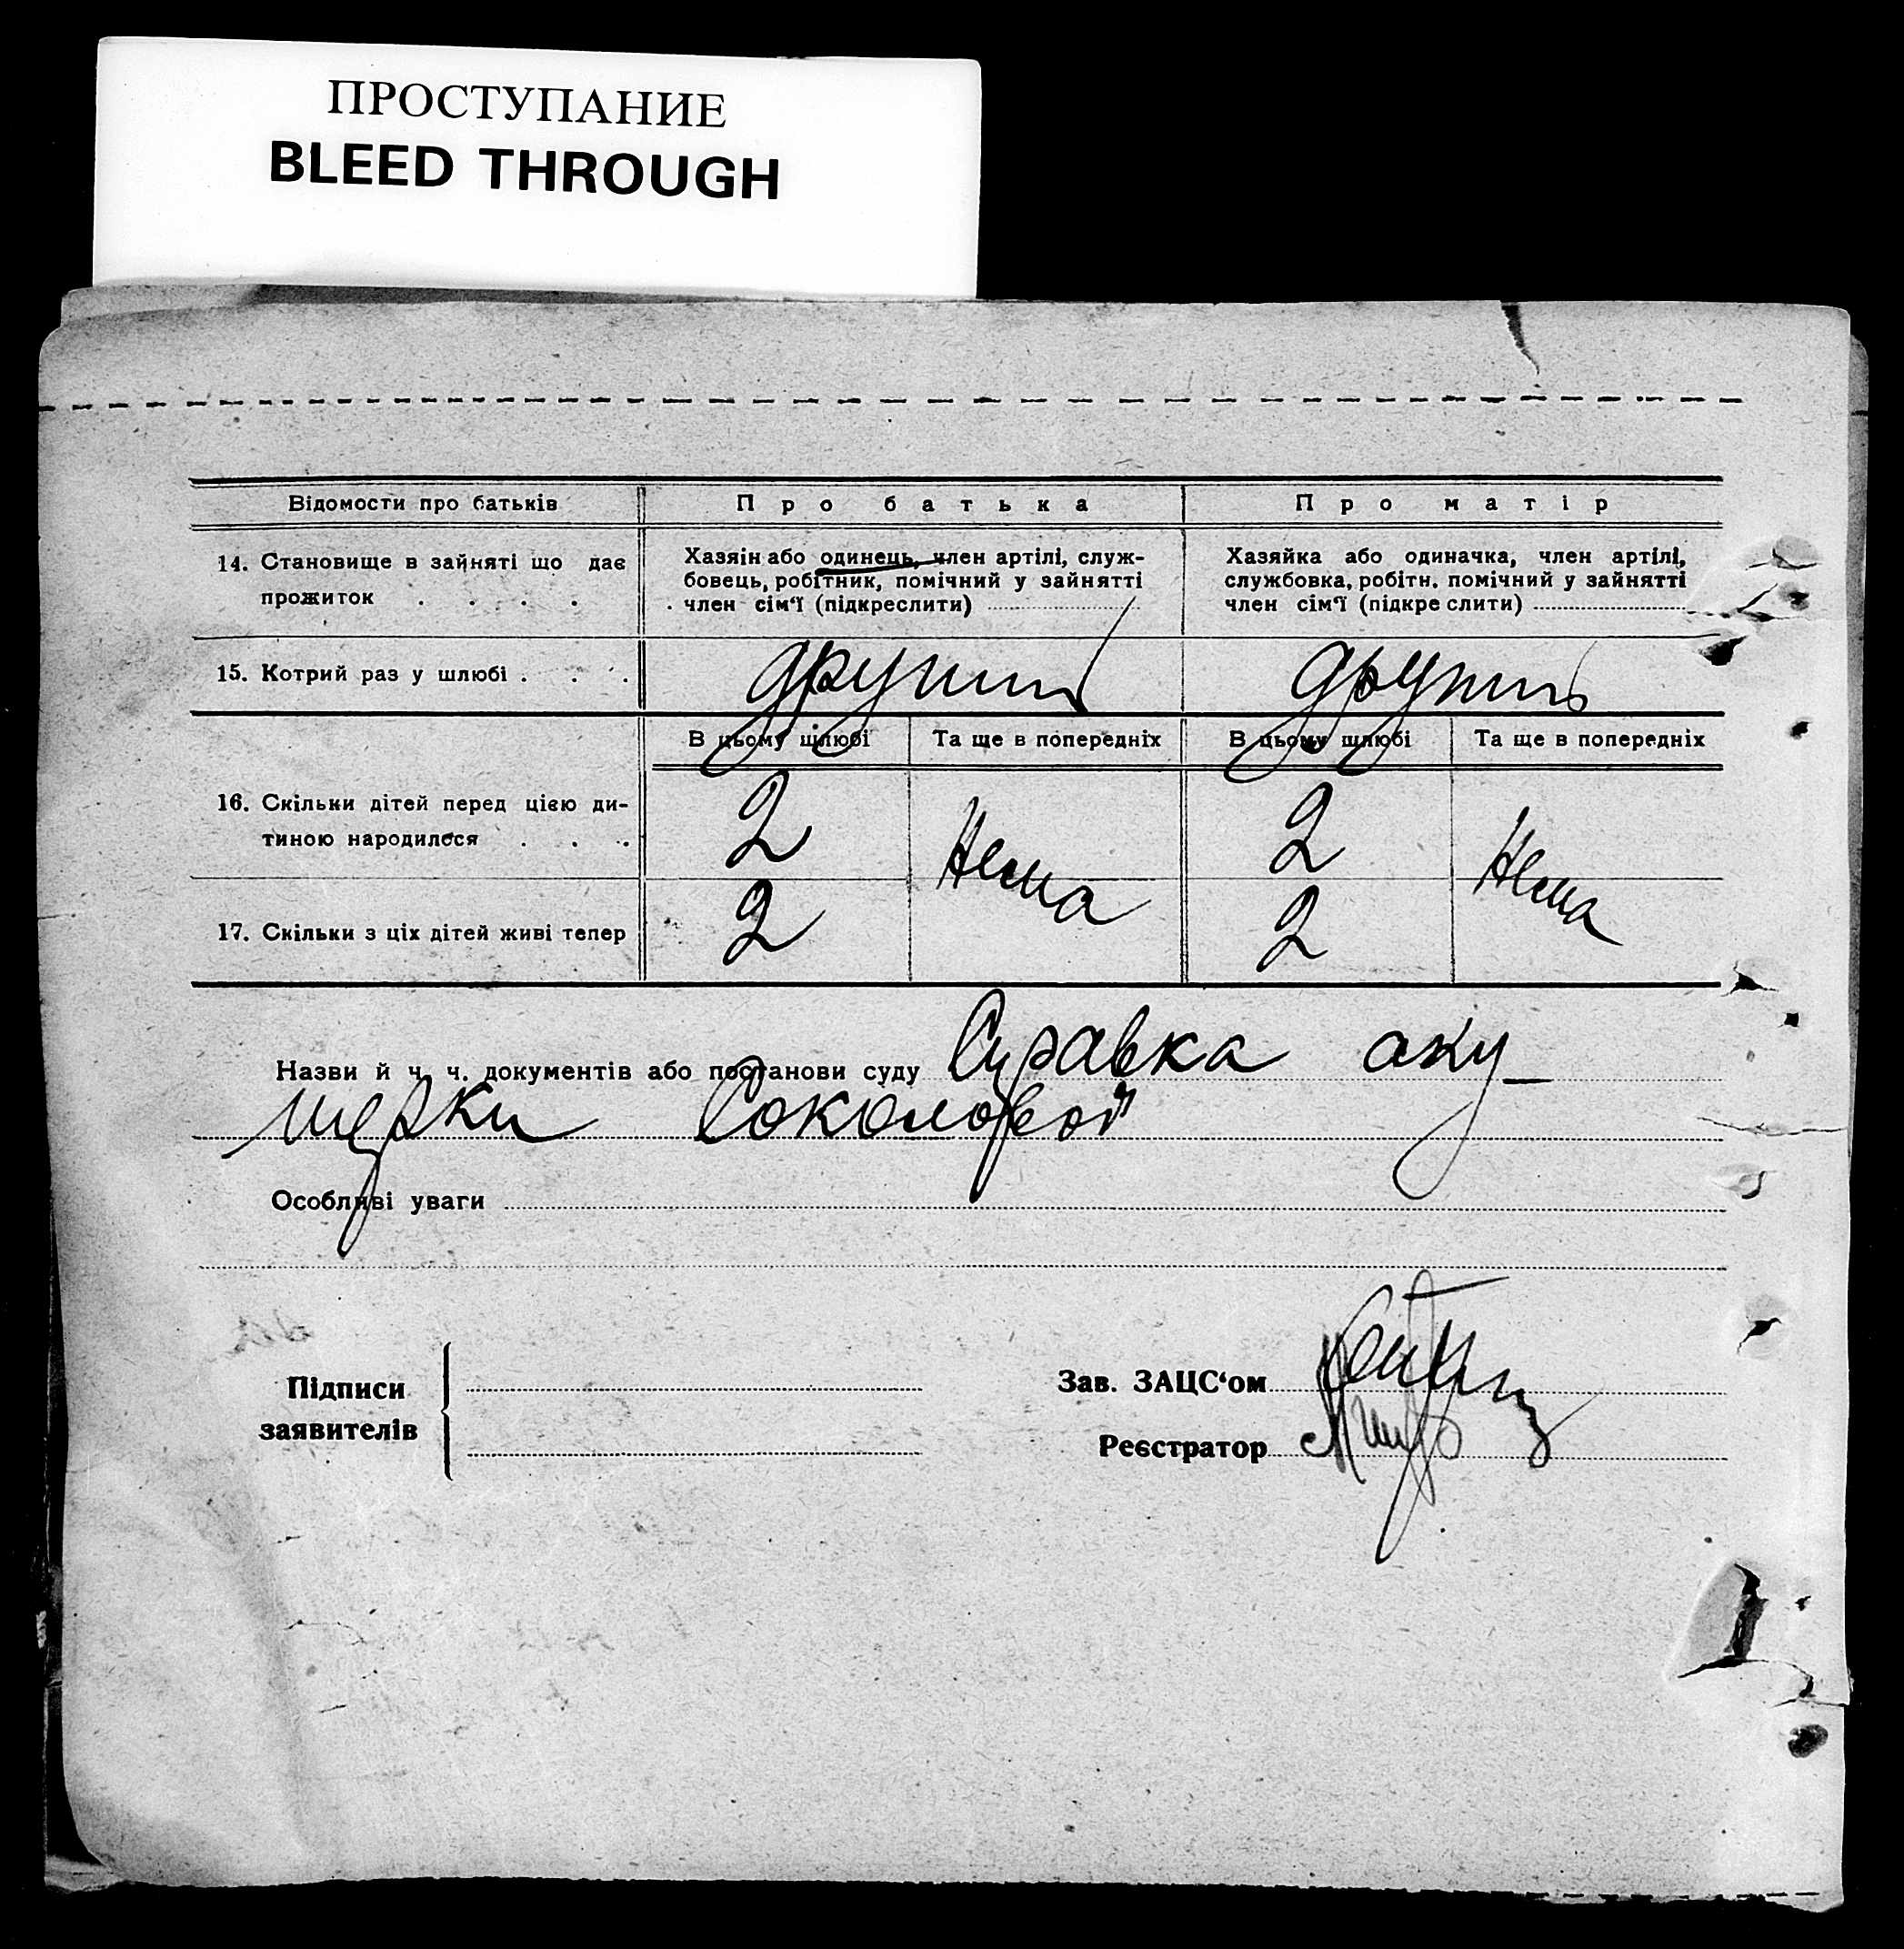 ПРОСТУПАНИЕ
BLEED THROUGH
Відомости про батьків
Про батька
Про матір
14. Становище в зайняті що дає
прожиток . . . .
Хазяін або одинець, член артілі, служ-
бовець, робітник, помічний у зайнятті
член сім‘ї (підкреслити)
Хазяйка або одиначка, член артілі,
службовка, робітн. помічний у зайнятті
член сім‘ї (підкреслити)
15. Котрий раз у шлюбі . . .
другий
другий
В цьому шлюбі
Та ще в попередніх
В цьому шлюбі
Та ще в попередніх
16. Скільки дітей перед цією ди-
тиною народилося . . .
2
Нема
2
Нема
17. Скільки з ціх дітей живі тепер
2
2
Назви й ч. ч. документів або постанови суду Справка аку-
шерки Соколовой
Особливі уваги
Підписи
заявителів
Зав. ЗАЦС‘ом
Реєстратор